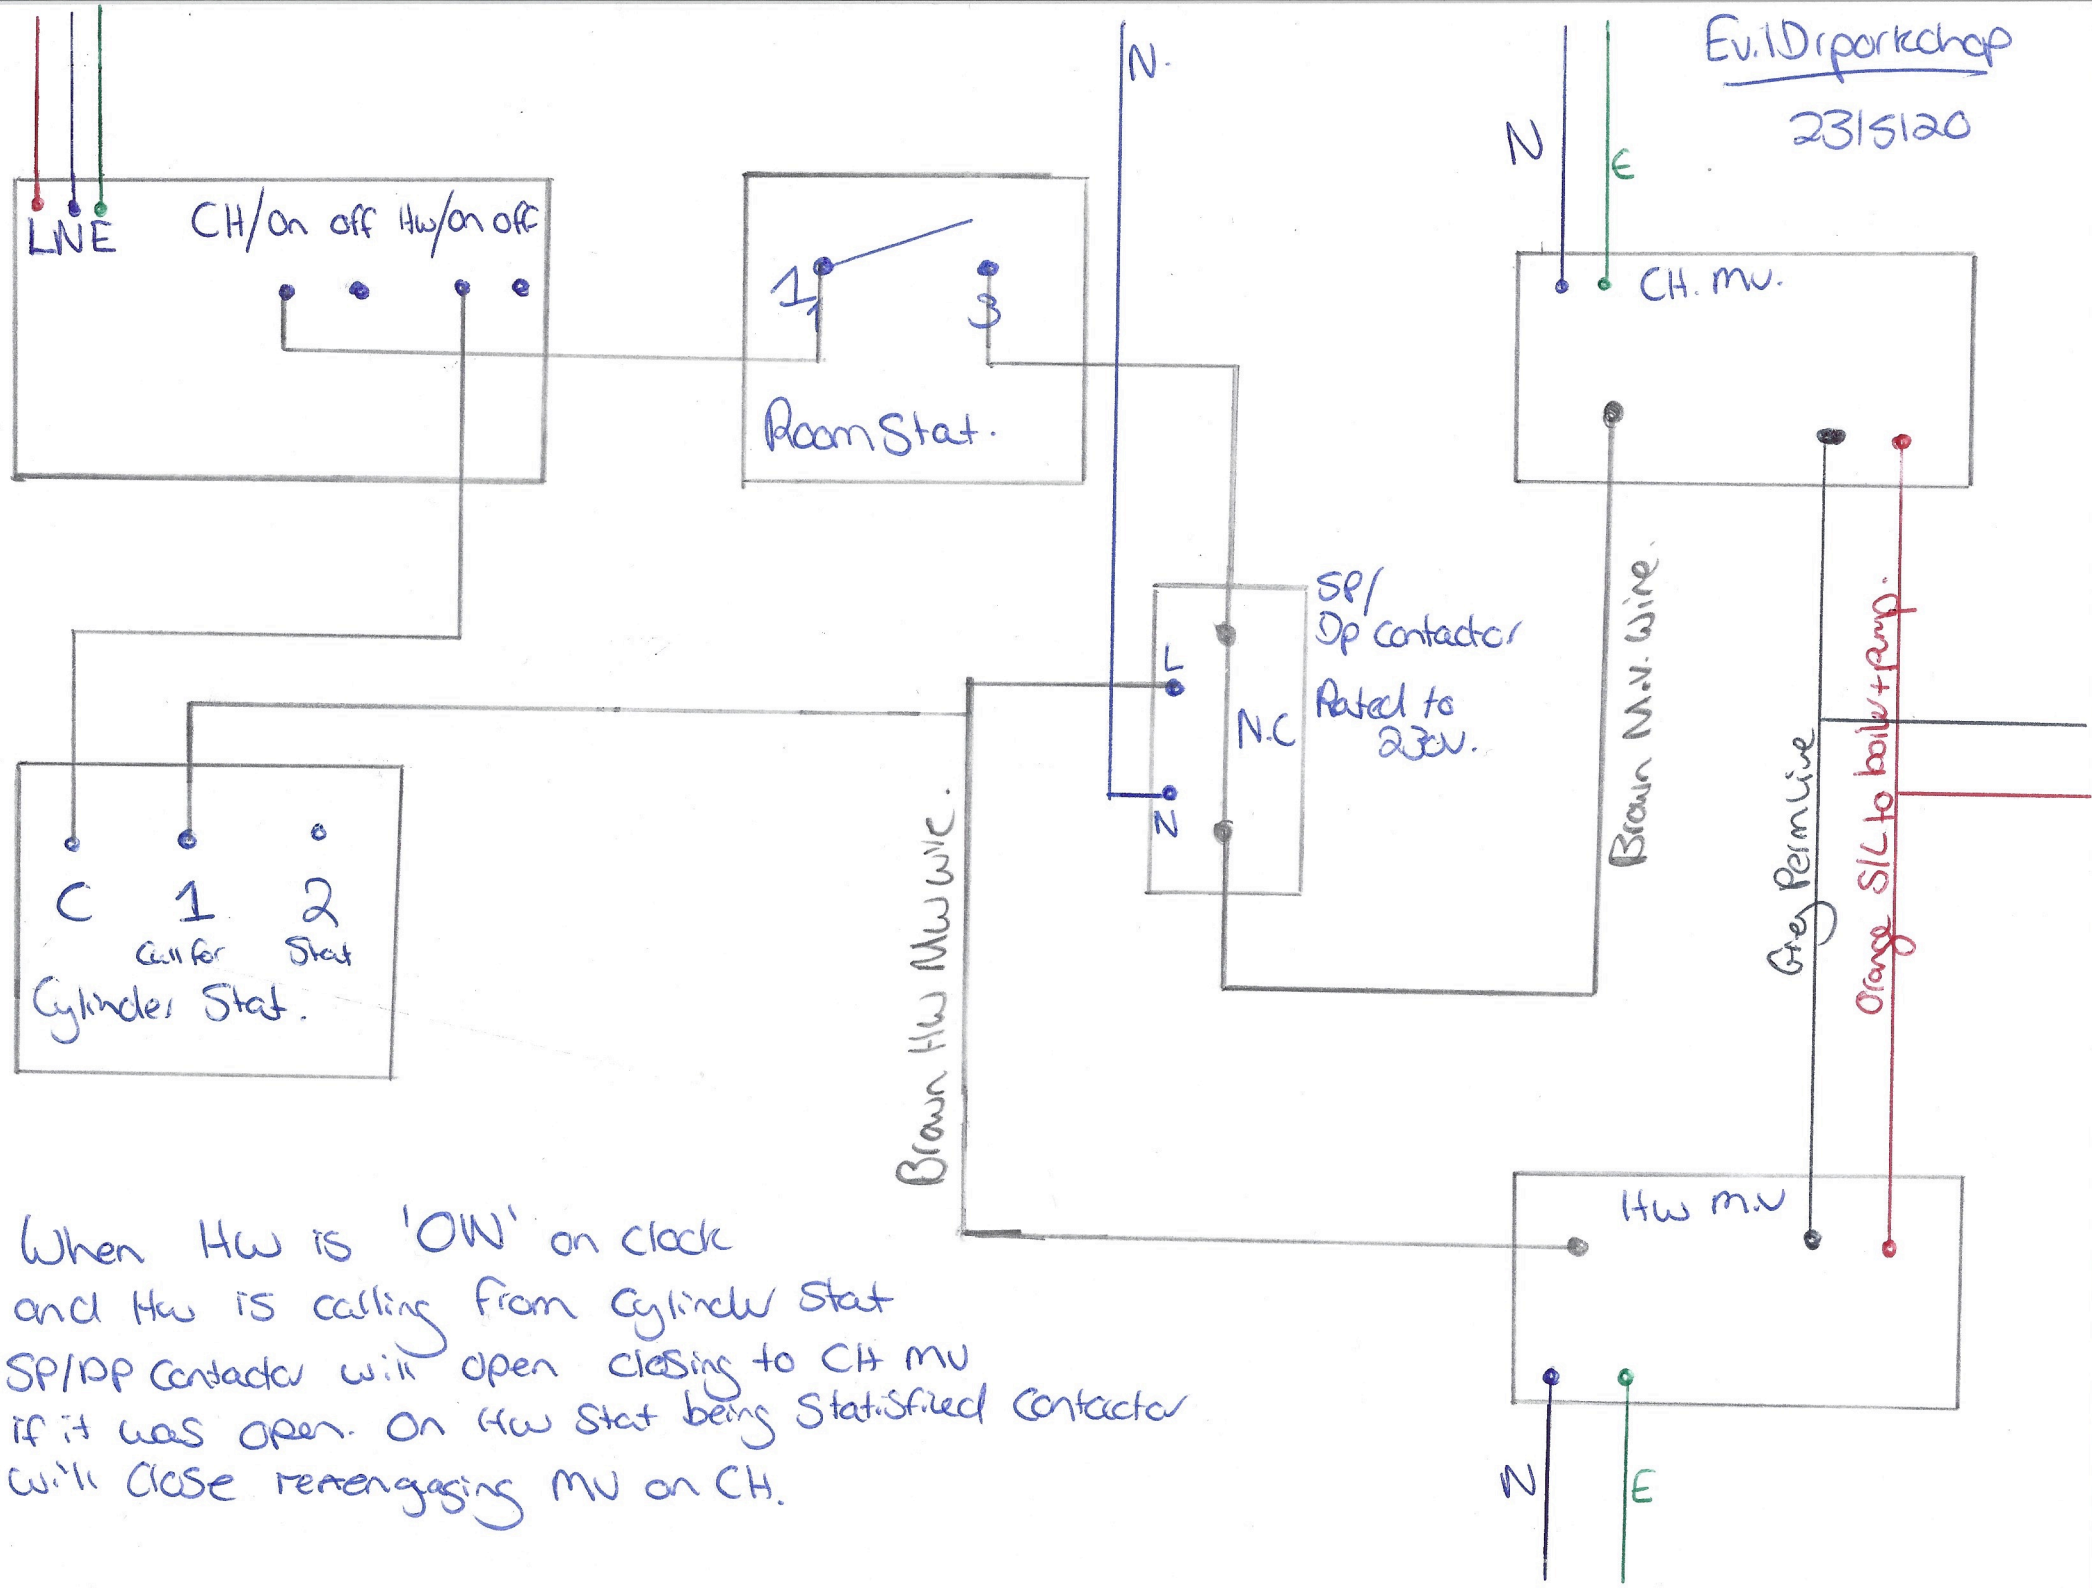 Ev.lDrporkchop
23/5/20
N.
N
E
LNE
CH/on off Hw/on off
1
1
3
Room Stat.
CH. MV.
SP/
Dp contactor
Rated to
230V.
L
N.C
N
Brown M.V. Wire.
Grey Perm Live
Orange S/L to boiler + pump.
C 1 2
Call for Stat
Cylinder Stat.
Brown HW MV
HW M.V
N
E
When HW is 'ON' on clock
and Hw is calling from Cylinder Stat
SP/DP Contactor will open closing to CH MV
if it was open. On HW Stat being Statisfied Contactor
will close MV on CH.